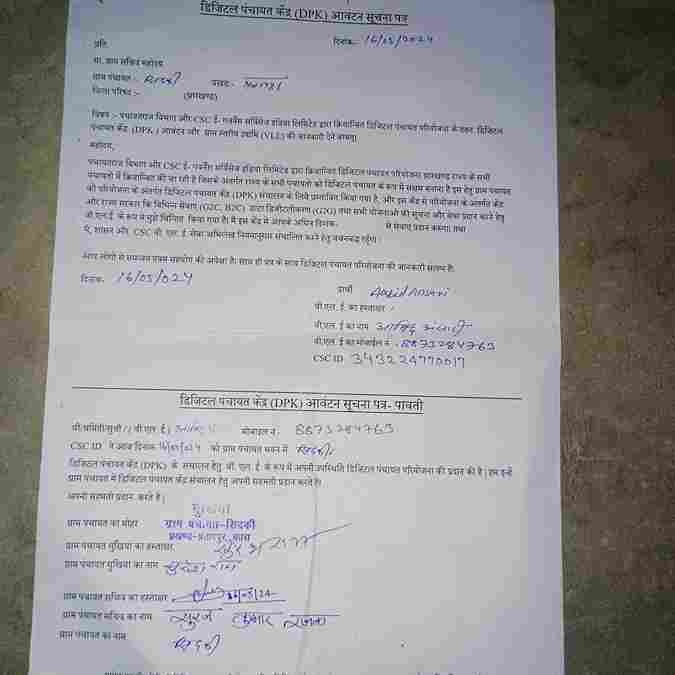 डिजिटल पंचायत केंद्र (DPK) आवंटन सूचना पत्र
दिनांक:- 16/05/2024
प्रति,
मा. ग्राम सचिव महोदय
ग्राम पंचायत :- प्रखंड:-
जिला परिषद :- (झारखण्ड)
विषय :- पंचायतराज विभाग और CSC ई- गवर्नेंस सर्विसेज इंडिया लिमिटेड द्वारा क्रियान्वित डिजिटल पंचायत परियोजना के तहत डिजिटल
पंचायत केंद्र (DPK) आवंटन और ग्राम स्तरीय उद्यमि (VLE) की जानकारी देने बाबत|
महोदय,
पंचायतराज विभाग और CSC ई- गवर्नेंस सर्विसेज इंडिया लिमिटेड द्वारा क्रियान्वित डिजिटल पंचायत परियोजना झारखण्ड राज्य के सभी
पंचायतों में क्रियान्वित की जा रही है जिसके अंतर्गत राज्य के सभी पंचायतों को डिजिटल पंचायत के रूप में सक्षम बनाना है इस हेतु ग्राम पंचायत
को परियोजना के अंतर्गत डिजिटल पंचायत केंद्र (DPK) संचालन के लिये प्रस्तावित किया गया है, और इस केंद्र से परियोजना के अंतर्गत केंद्र
और राज्य सरकार कि विभिन्न सेवाएं (G2C, B2C) डाटा डिजीटलीकरण (G2G) तथा सभी योजनाओं की सूचना और सेवा प्रदान करने हेतु
वी.एल.ई. के रूप में मुझे चिन्हित किया गया है| मै इस केंद्र में आपके अधिन दिनांक- से सेवाएं प्रदान करूंगा तथा
पं, शासन और CSC वी. एल. ई. सेवा अभिलेख नियमानुसार संचालित करने हेतु वचनबद्ध रहूँगा |
आप लोगो से समन्वय एवम सहयोग की अपेक्षा है| साथ ही पत्र के साथ डिजिटल पंचायत परियोजना की जानकारी सलग्न है|
दिनांक- 16/05/024
प्रार्थी Aabid Ansari
वी.एल. ई. का हस्ताक्षर :
वी.एल. ई का नाम : आबिद अंसारी
वी.एल. ई का मोबाईल नं :- 8873284763
CSC ID : 343224770017
डिजिटल पंचायत केंद्र (DPK) आवंटन सूचना पत्र- पावती
मोबाइल नं:- 8873284763
CSC ID ने आज दिनांक को ग्राम पंचायत भवन में
डिजिटल पंचायत केंद्र (DPK) के संचालन हेतु वी. एल. ई. के रूप में अपनी उपस्थिति डिजिटल पंचायत परियोजना की प्रदान की है | हम इन्हें
ग्राम पंचायत में डिजिटल पंचायत केंद्र संचालन हेतु अपनी सहमती प्रदान करते है|
अपनी सहमती प्रदान करते है |
मुखिया
ग्राम पंचायत का मोहर ग्राम पंचायत-सिदकी
प्रखण्ड-प्रतापपुर, चतरा
ग्राम पंचायत मुखिया का हस्ताक्षर
ग्राम पंचायत मुखिया का नाम
ग्राम पंचायत सचिव का हस्ताक्षर
ग्राम पंचायत सचिव का नाम सुरज कुमार
ग्राम पंचायत का नाम